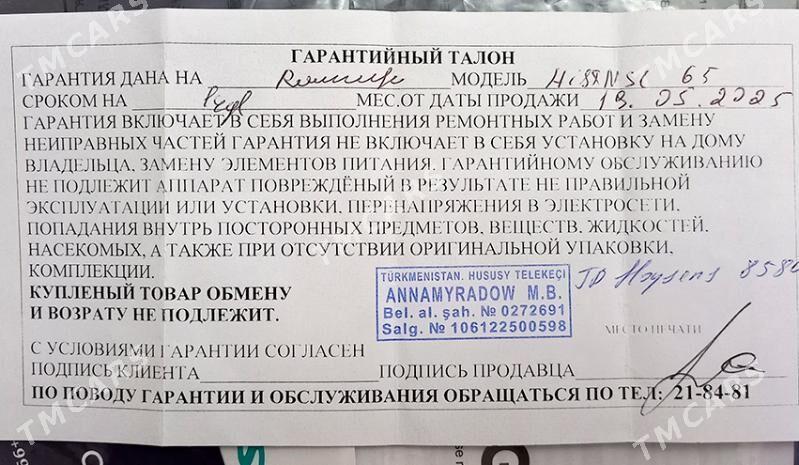 ГАРАНТИЙНЫЙ ТАЛОН
ГАРАНТИЯ ДАНА НА МОДЕЛЬ 65
СРОКОМ НА МЕС.ОТ ДАТЫ ПРОДАЖИ 13.05.2025
ГАРАНТИЯ ВКЛЮЧАЕТ В СЕБЯ ВЫПОЛНЕНИЯ РЕМОНТНЫХ РАБОТ И ЗАМЕНУ
НЕИПРАВНЫХ ЧАСТЕЙ ГАРАНТИЯ НЕ ВКЛЮЧАЕТ В СЕБЯ УСТАНОВКУ НА ДОМУ
ВЛАДЕЛЬЦА, ЗАМЕНУ ЭЛЕМЕНТОВ ПИТАНИЯ. ГАРАНТИЙНОМУ ОБСЛУЖИВАНИЮ
НЕ ПОДЛЕЖИТ АППАРАТ ПОВРЕЖДЁНЫЙ В РЕЗУЛЬТАТЕ НЕ ПРАВИЛЬНОЙ
ЭКСПЛУАТАЦИИ ИЛИ УСТАНОВКИ, ПЕРЕНАПРЯЖЕНИЯ В ЭЛЕКТРОСЕТИ,
ПОПАДАНИЯ ВНУТРЬ ПОСТОРОННЫХ ПРЕДМЕТОВ, ВЕЩЕСТВ, ЖИДКОСТЕЙ,
НАСЕКОМЫХ, А ТАКЖЕ ПРИ ОТСУТСТВИИ ОРИГИНАЛЬНОЙ УПАКОВКИ,
КОМПЛЕКЦИИ.
КУПЛЕНЫЙ ТОВАР ОБМЕНУ
И ВОЗРАТУ НЕ ПОДЛЕЖИТ.
TÜRKMENISTAN. HUSUSY TELEKEÇI
ANNAMYRADOW M.B.
Bel. al. şah. № 0272691
Salg. № 106122500598
МЕСТО ПЕЧАТИ
С УСЛОВИЯМИ ГАРАНТИИ СОГЛАСЕН
ПОДПИСЬ КЛИЕНТА ПОДПИСЬ ПРОДАВЦА
ПО ПОВОДУ ГАРАНТИИ И ОБСЛУЖИВАНИЯ ОБРАЩАТЬСЯ ПО ТЕЛ: 21-84-81
TMCARS